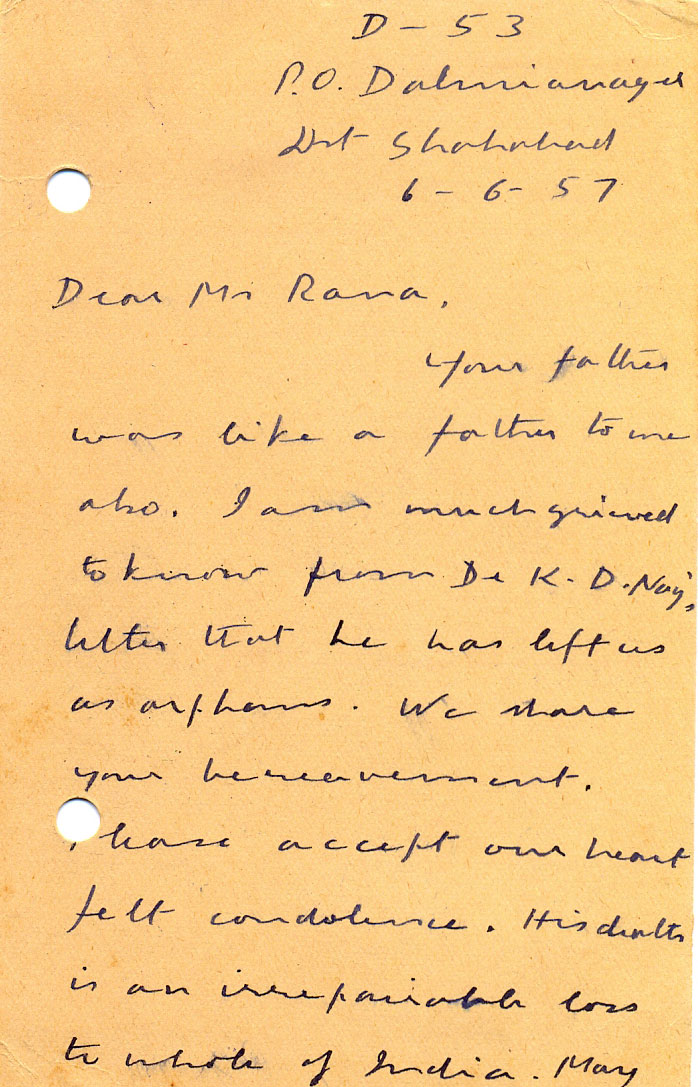 D - 53
P.O. Dalmianagar
Dist Shahabad
6 - 6 - 57
Dear Mr Rana,
Your father
was like a father to me
also. I am much grieved
to know from Dr K. D. Nag's
letter that he has left us
as orphans. We share
your bereavement.
Please accept our heart
felt condolence. His death
is an irreparable loss
to whole of India. May